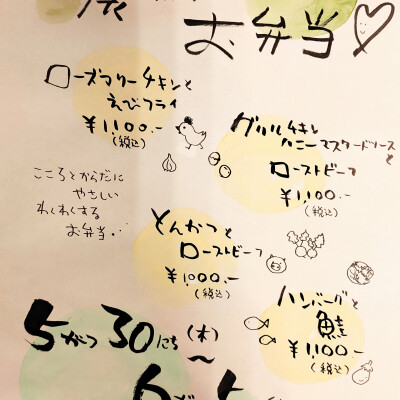 お弁当
ローズマリーチキンと
えびフライ
¥1,100.-
(税込)
グリルチキン
ハニーマスタードソースと
ローストビーフ
¥1,100.-
(税込)
こころとからだに
やさしい
わくわくする
お弁当…
とんかつと
ローストビーフ
¥1,000.-
(税込)
ハンバーグと
鮭
¥1,100.-
(税込)
5がつ30にち(木)
〜
6がつ